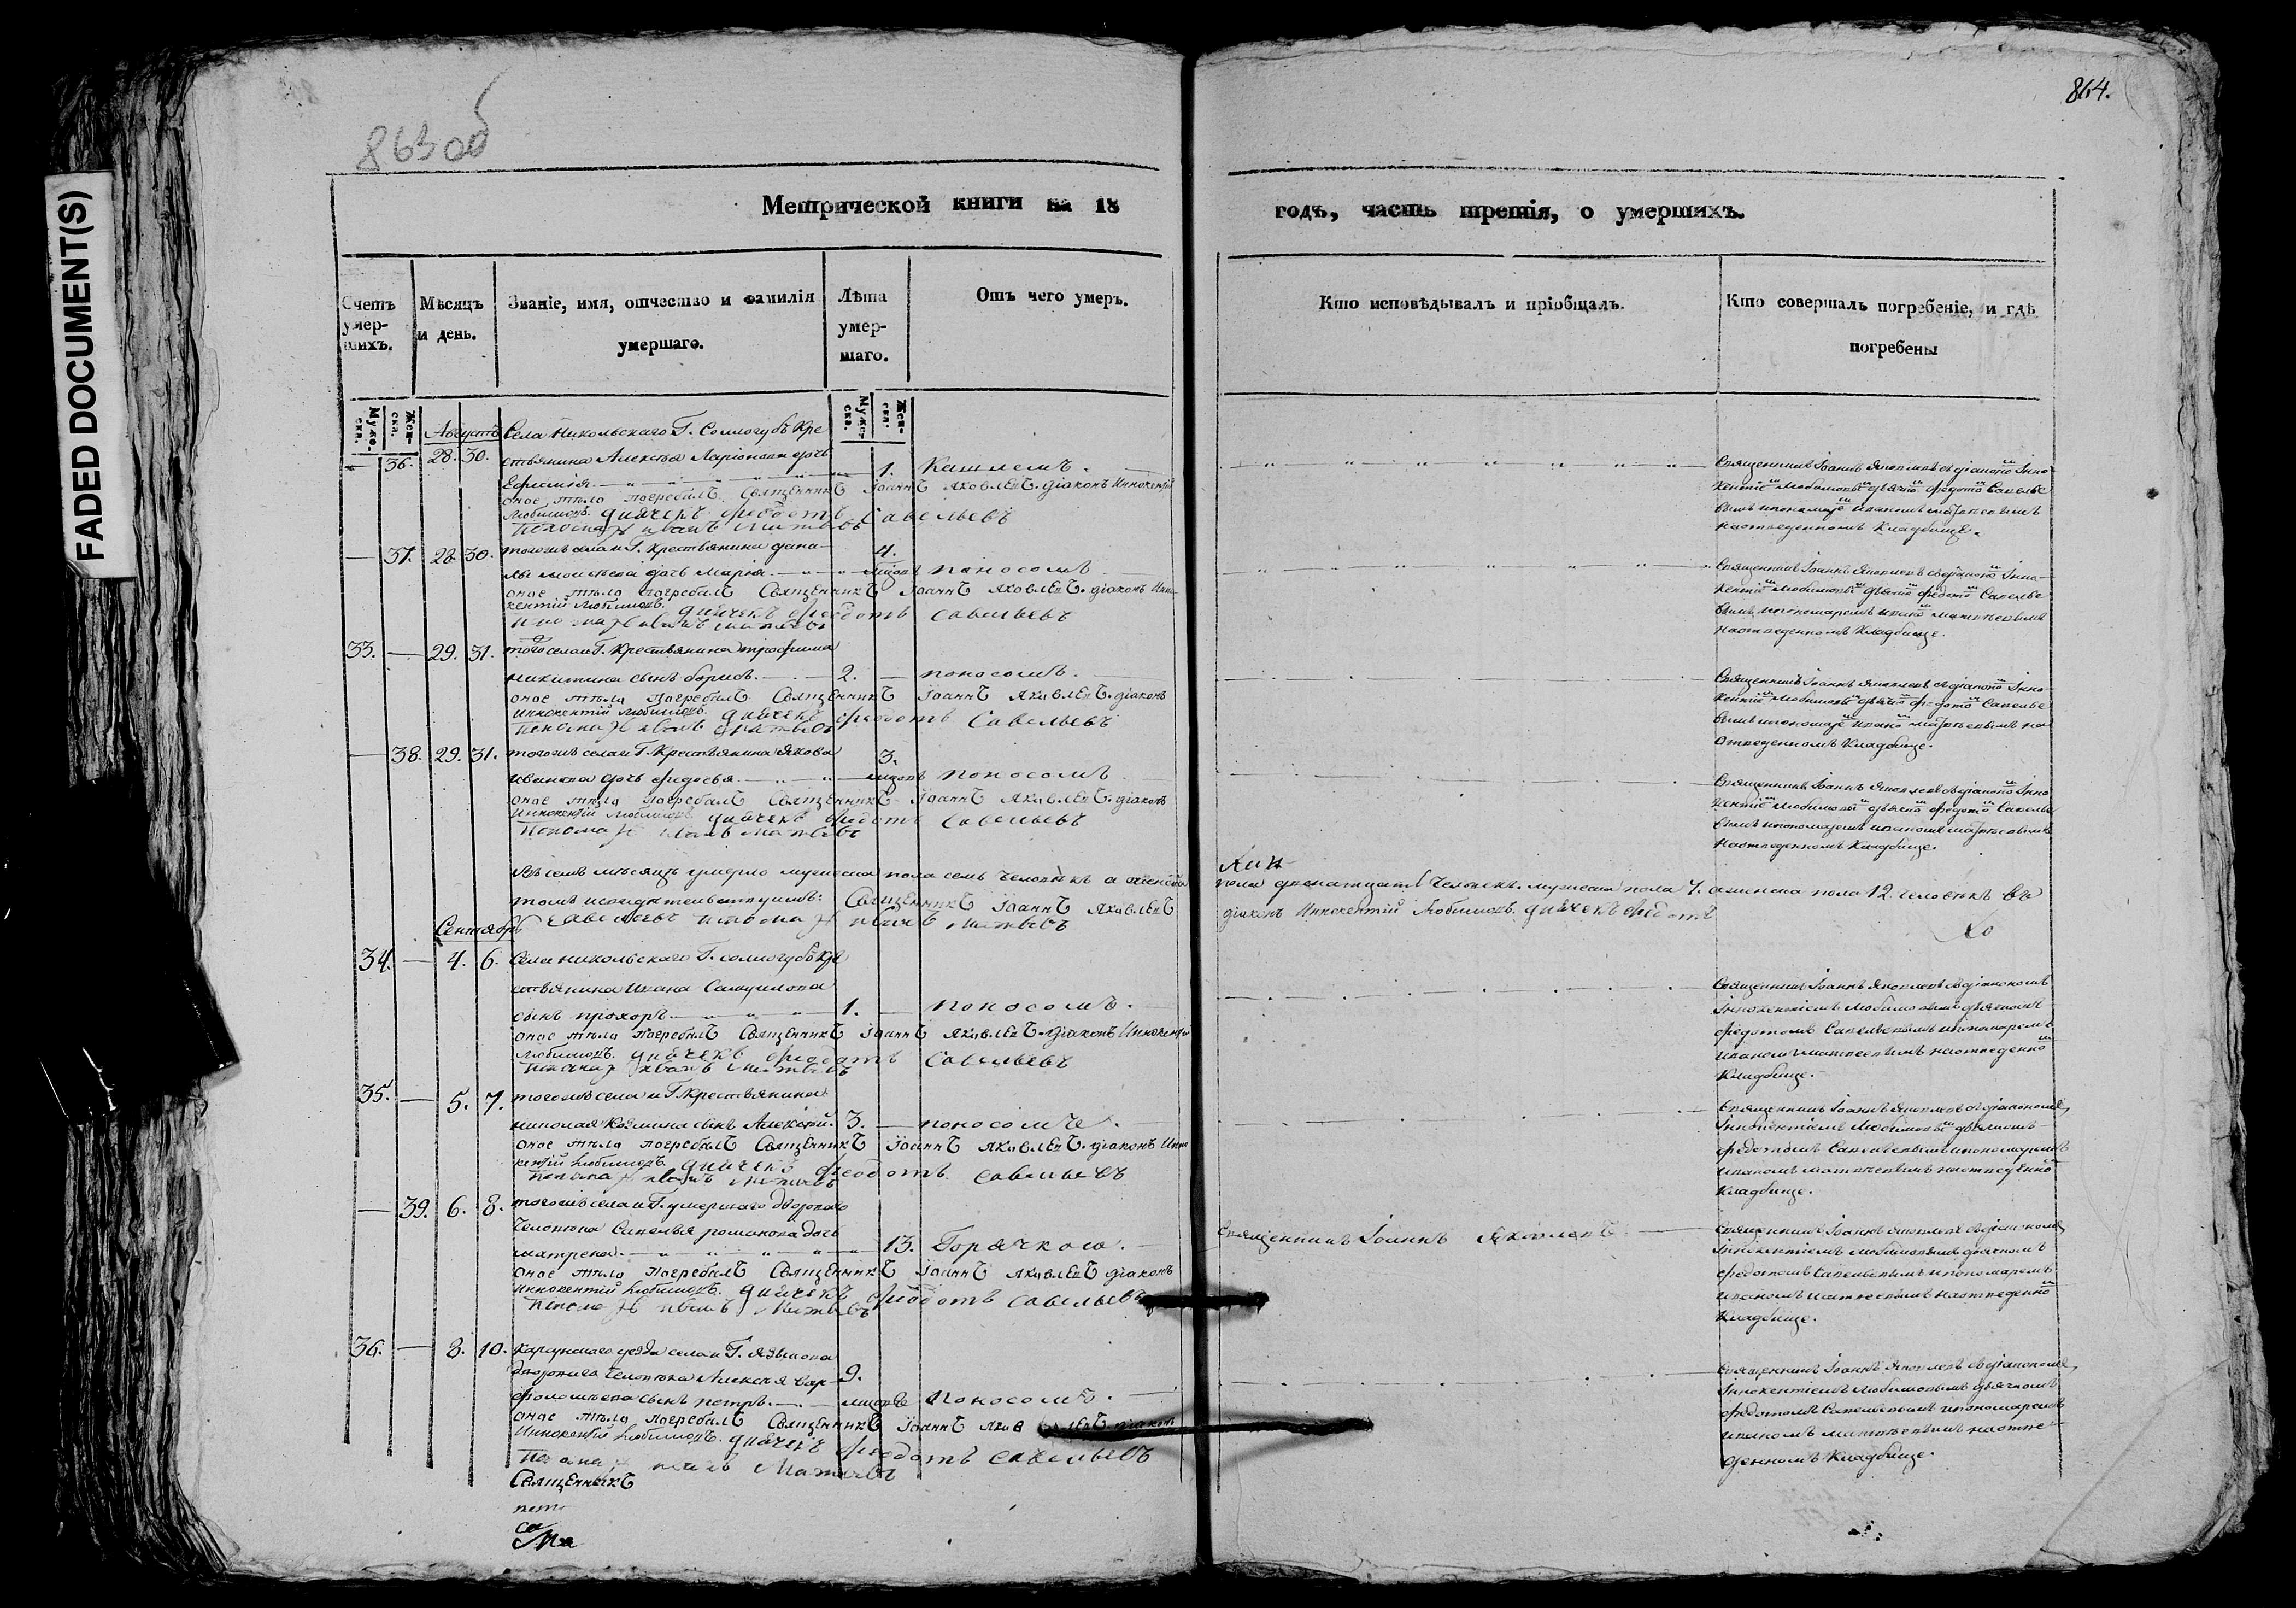 FADED DOCUMENT(S)
863 об
864.
Метрической книги на 18
годъ, часть третія, о умершихъ.
Счетъ умер-шихъ.
Мѣсяцъ и день.
Званіе, имя, отчество и фамилія умершаго.
Лѣта умер-шаго.
Отъ чего умеръ.
Кто исповѣдывалъ и пріобщалъ.
Кто совершалъ погребеніе, и гдѣ погребены
Муже-ска.
Жен-ска.
Муже-ска.
Жен-ска.
Августъ Села Никольскаго Г. Соллогубъ кре
— 36. 28. 30. стьянина Алексѣя Ларіонова дочь
Евфимія 1. Кашлемъ.
оное тѣло погребалъ Священникъ Іоаннъ Яковлевъ. діаконъ Иннокентій
Любимовъ. дьячекъ Федотъ Савельевъ
Пономарь Иванъ Матвѣевъ
Священникъ Іоаннъ Яковлевъ съ діакономъ Інно-
кентіемъ Любимовымъ дьячкомъ Федотомъ Савелье
вымъ и пономаремъ Иваномъ Матвеевымъ
на отведенномъ Кладбище.
— 37. 28. 30. тогожъ села и Г. Крестьянина
Моисеева дочь Марія 4. мѣсяцъ поносомъ
оное тѣло погребалъ Священникъ Іоаннъ Яковлевъ. діаконъ Инно-
кентій Любимовъ. дьячекъ Федотъ Савельевъ
Пономарь Иванъ Матвѣевъ
Священникъ Іоаннъ Яковлевъ съ діакономъ Інно-
кентіемъ Любимовымъ дьячкомъ Федотомъ Савелье
вымъ, и пономаремъ Иваномъ Матвеевымъ
на отведенномъ Кладбище.
33. — 29. 31. тогожъ села и Г. Крестьянина Трофима
Никитина сынъ Борисъ. 2. — поносомъ.
оное тѣло погребалъ Священникъ Іоаннъ Яковлевъ. діаконъ
Иннокентій Любимовъ. дьячекъ Федотъ Савельевъ
Пономарь Иванъ Матвѣевъ
Священникъ Іоаннъ Яковлевъ съ діакономъ Інно
кентіемъ Любимовымъ дьячкомъ Федотомъ Савелье
вымъ и пономаремъ Иваномъ Матвеевымъ на
отведенномъ Кладбище.
— 38. 29. 31. тогожъ села и Г. Крестьянина Якова
Иванова дочь Федосья 3. мѣсяцъ поносомъ
оное тѣло погребалъ Священникъ Іоаннъ Яковлевъ. діаконъ
Иннокентій Любимовъ дьячекъ Федотъ Савельевъ
Пономарь Иванъ Матвѣевъ
Священникъ Іоаннъ Яковлевъ съ діакономъ Інно
кентіемъ Любимовымъ дьячкомъ Федотомъ Савелье
вымъ и пономаремъ Иваномъ Матвеевымъ
на отведенномъ Кладбище.
Въ семъ мѣсяцѣ умерло мужеска пола семь человѣкъ а женска
пола двенатцать человекъ. мужеска пола 7. а женска пола 12. человѣкъ въ
томъ и свидѣтельствуемъ: Священникъ Іоаннъ Яковлевъ
діаконъ Иннокентій Любимовъ. дьячекъ Федотъ
Сентябрь Савельевъ Пономарь Иванъ Матвѣевъ
34. — 4. 6. Села Никольскаго Г. Соллогубъ кре
стьянина Ивана Самуилова
сынъ Прохоръ 1. — поносомъ.
оное тѣло погребалъ Священникъ Іоаннъ Яковлевъ. діаконъ Иннокентій
Любимовъ. дьячекъ Федотъ Савельевъ
Пономарь Иванъ Матвѣевъ
Священникъ Іоаннъ Яковлевъ съ діакономъ
Інокентіемъ Любимовымъ дьячкомъ
Федотомъ Савельевымъ и пономаремъ
Иваномъ Матвеевымъ на отведенномъ
Кладбище.
35. — 5. 7. тогожъ села и Г. Крестьянина
Николая Козмина сынъ Алексѣй. 3. — поносомъ.
оное тѣло погребалъ Священникъ Іоаннъ Яковлевъ. діаконъ Инно
кентій Любимовъ. дьячекъ Федотъ Савельевъ
Пономарь Иванъ Матвѣевъ
Священникъ Іоаннъ Яковлевъ съ діакономъ
Інокентіемъ Любимовымъ дьячкомъ
Федотомъ Савельевымъ и пономаремъ
Иваномъ Матвѣевымъ на отведенномъ
Кладбище.
— 39. 6. 8. тогожъ села и Г. умершаго двороваго
человека Савелья Романова дочь
Матрена 13. Горячкою.
Священникъ Іоаннъ Яковлевъ
оное тѣло погребалъ Священникъ Іоаннъ Яковлевъ діаконъ
Иннокентій Любимовъ. дьячекъ Федотъ Савельевъ
Пономарь Иванъ Матвѣевъ
Священникъ Іоаннъ Яковлевъ съ діакономъ
Інокентіемъ Любимовымъ дьячкомъ
Федотомъ Савельевымъ и пономаремъ
Иваномъ Матвеевымъ на отведенномъ
Кладбище.
36. — 8. 10. Карсунскаго уезда села и Г. Языкова
двороваго человека Алексея Вар-
фоломѣева сынъ Петръ. 9. мѣсяцевъ поносомъ.
оное тѣло погребалъ Священникъ Іоаннъ Яковлевъ діаконъ
Иннокентій Любимовъ. дьячекъ Федотъ Савельевъ
Пономарь Иванъ Матвѣевъ
Священникъ
Священникъ Іоаннъ Яковлевъ съ діакономъ
Інокентіемъ Любимовымъ дьячкомъ
Федотомъ Савельевымъ и пономаремъ
Иваномъ Матвѣевымъ на отве-
денномъ Кладбище.